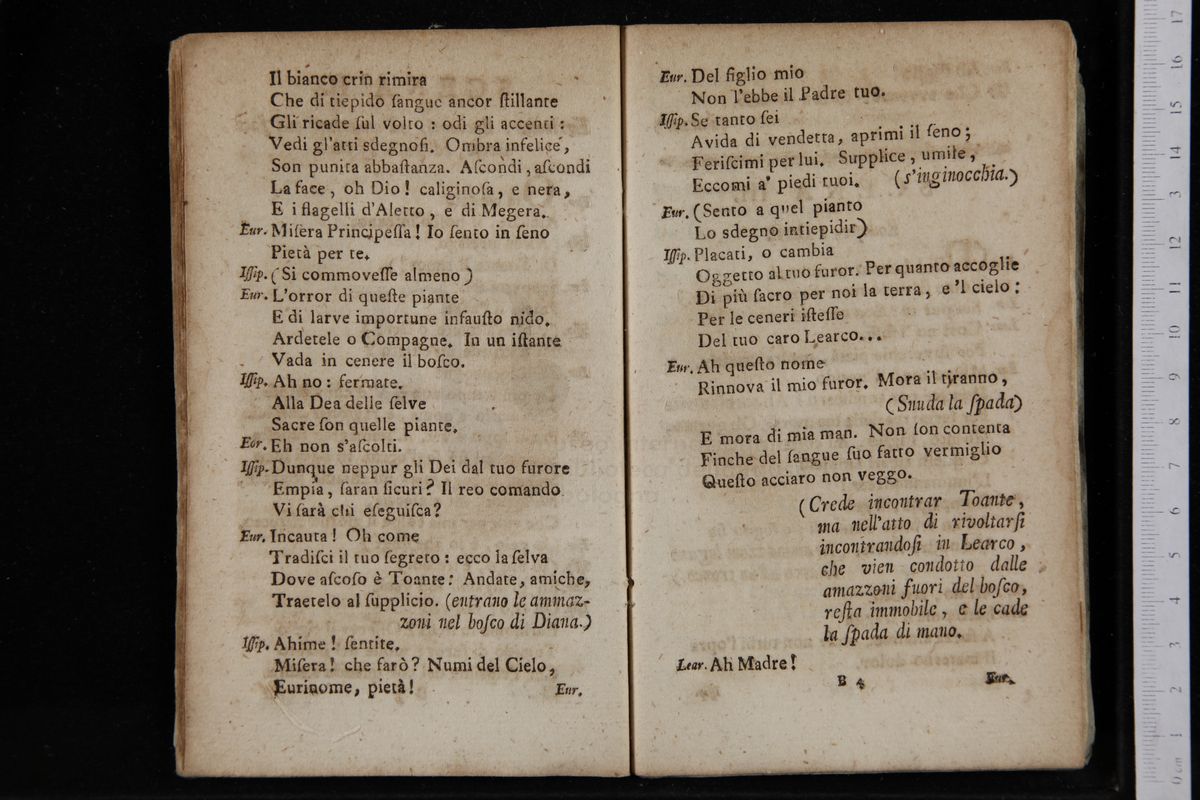 Il bianco crin rimira
Che di tiepido ſangue ancor ſtillante
Gli ricade ſul volto : odi gli accenti :
Vedi gl'atti sdegnoſi. Ombra infelice,
Son punita abbaſtanza. Aſcondi, aſcondi
La face, oh Dio! caliginoſa, e nera,
E i flagelli d'Aletto, e di Megera.
Eur. Miſera Principeſſa! Io ſento in ſeno
Pietà per te.
Iſſip. (Si commoveſſe almeno)
Eur. L'orror di queſte piante
E di larve importune infauſto nido.
Ardetele o Compagne. In un iſtante
Vada in cenere il boſco.
Iſſip. Ah no : fermate.
Alla Dea delle ſelve
Sacre ſon quelle piante.
Eor. Eh non s'aſcolti.
Iſſip. Dunque neppur gli Dei dal tuo furore
Empia, ſaran ſicuri? Il reo comando
Vi ſarà chi eſeguiſca?
Eur. Incauta! Oh come
Tradiſci il tuo ſegreto : ecco la ſelva
Dove aſcoſo è Toante: Andate, amiche,
Traetelo al ſupplicio. (entrano le ammaz-
zoni nel boſco di Diana.)
Iſſip. Ahime! ſentite.
Miſera! che farò? Numi del Cielo,
Eurinome, pietà!
Eur.
Eur. Del figlio mio
Non l'ebbe il Padre tuo.
Iſſip. Se tanto ſei
Avida di vendetta, aprimi il ſeno;
Feriſcimi per lui. Supplice, umile,
Eccomi a' piedi tuoi. (s'inginocchia.)
Eur. (Sento a quel pianto
Lo sdegno intiepidir)
Iſſip. Placati, o cambia
Oggetto al tuo furor. Per quanto accoglie
Di più ſacro per noi la terra, e 'l cielo:
Per le ceneri iſteſſe
Del tuo caro Learco...
Eur. Ah queſto nome
Rinnova il mio furor. Mora il tiranno,
(Snuda la ſpada)
E mora di mia man. Non ſon contenta
Finche del ſangue ſuo fatto vermiglio
Queſto acciaro non veggo.
(Crede incontrar Toante,
ma nell'atto di rivoltarſi
incontrandoſi in Learco,
che vien condotto dalle
amazzoni fuori del boſco,
reſta immobile, e le cade
la ſpada di mano.
Lear. Ah Madre!
B 4
Eur.